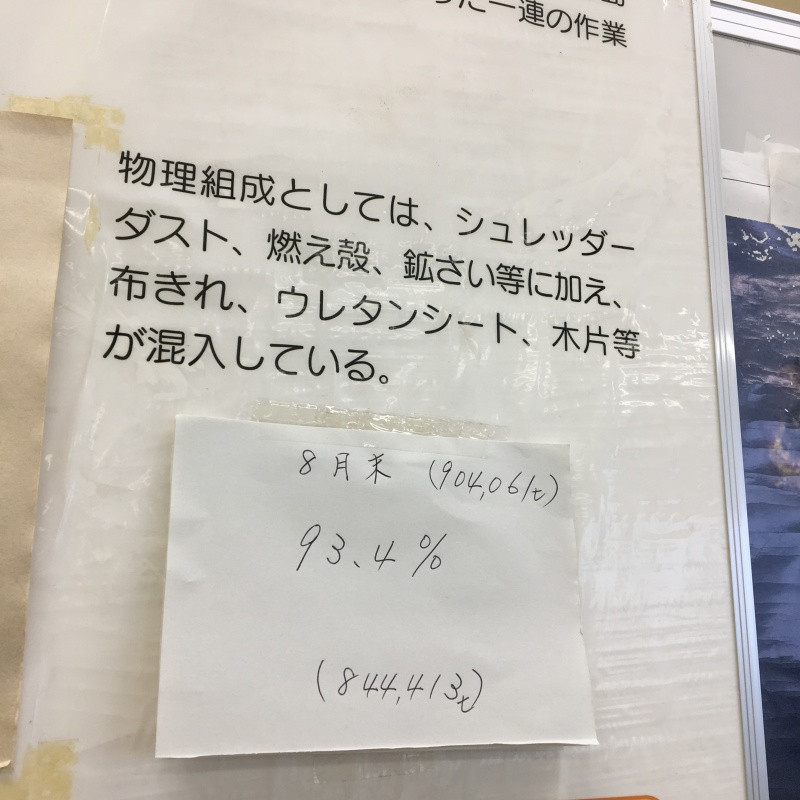 った一連の作業
物理組成としては、シュレッダー
ダスト、燃え殻、鉱さい等に加え、
布きれ、ウレタンシート、木片等
が混入している。
8月末 (904,061t)
93.4%
(844,413t)